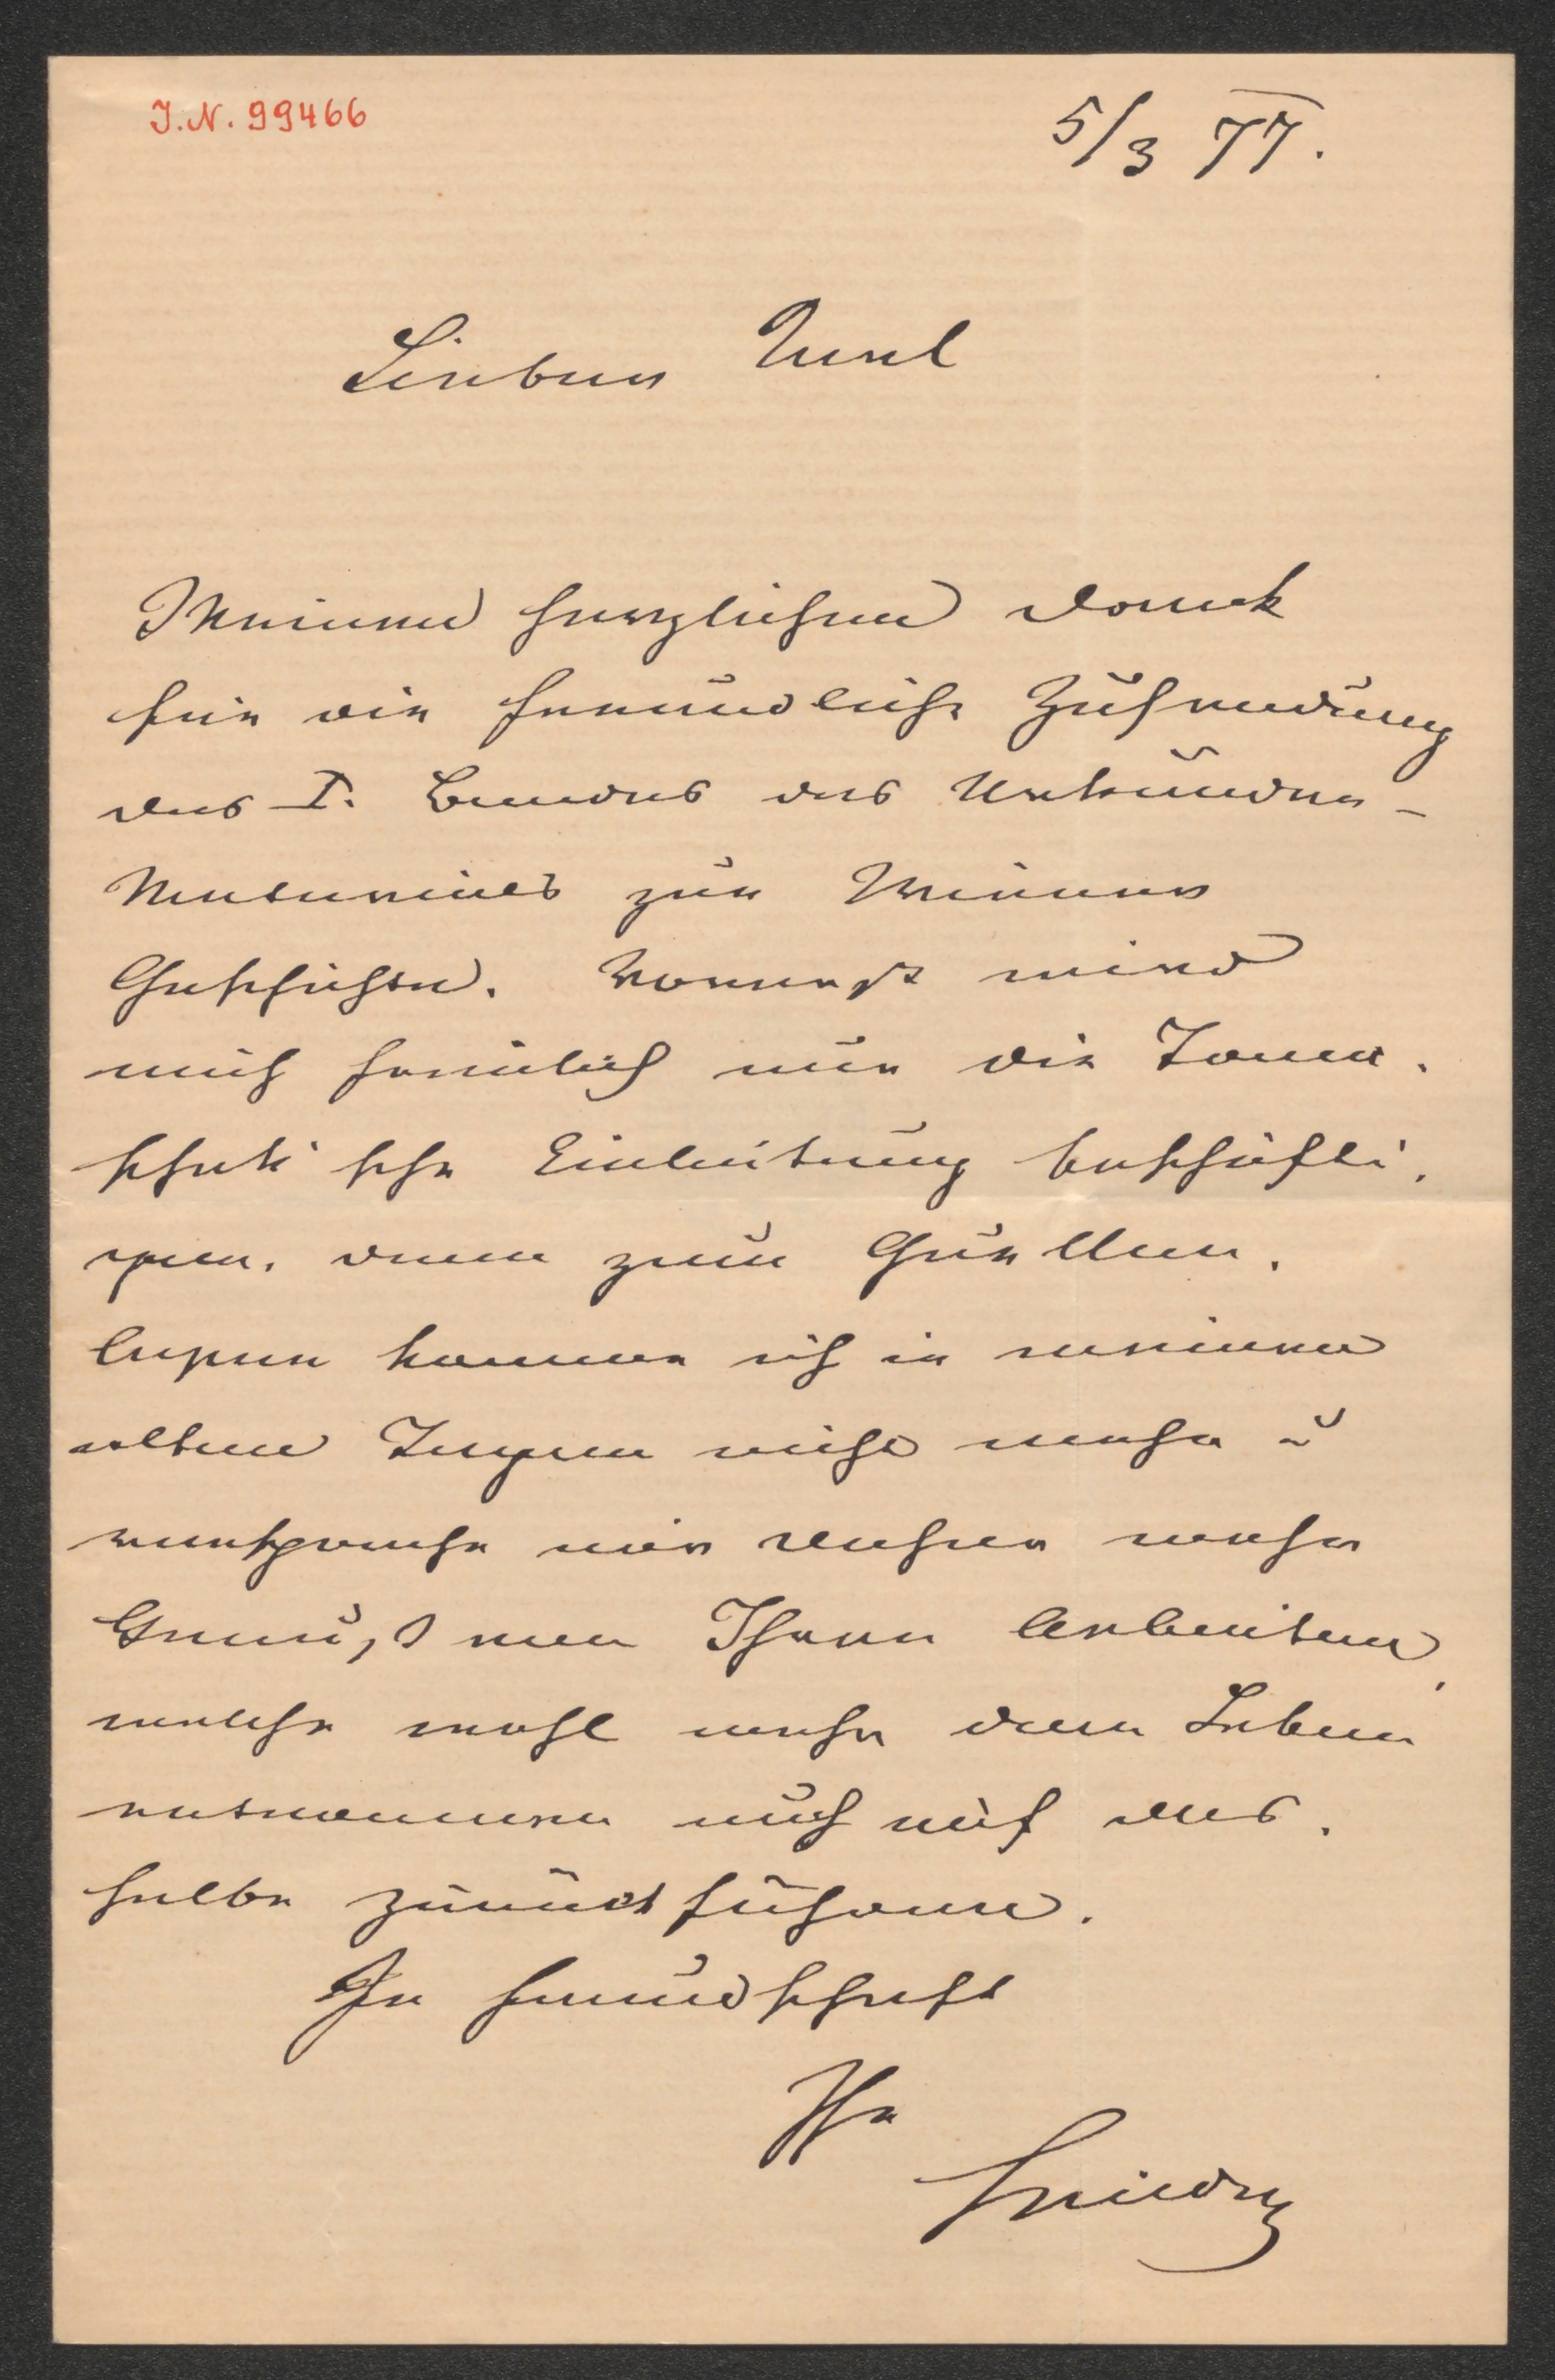 I.N. 99466
5/3 77.
Lieber
Meinen herzlichen Dank
für die freundliche Zusendung
des I. Bandes des Urkunden-
Materiales zur Wiener
Geschichte. Vorerst wird
mich freilich nur die Toma-
schek'sche Einleitung beschäfti-
gen, denn zum Quellen-
lesen komme ich in meinen
alten Tagen nicht mehr u
verspreche mir daher mehr
Genuß von Ihren Arbeiten,
welche wohl mehr dem Leben
entnommen auch auf das-
selbe zurückführen.
In Freundschaft
Ihr